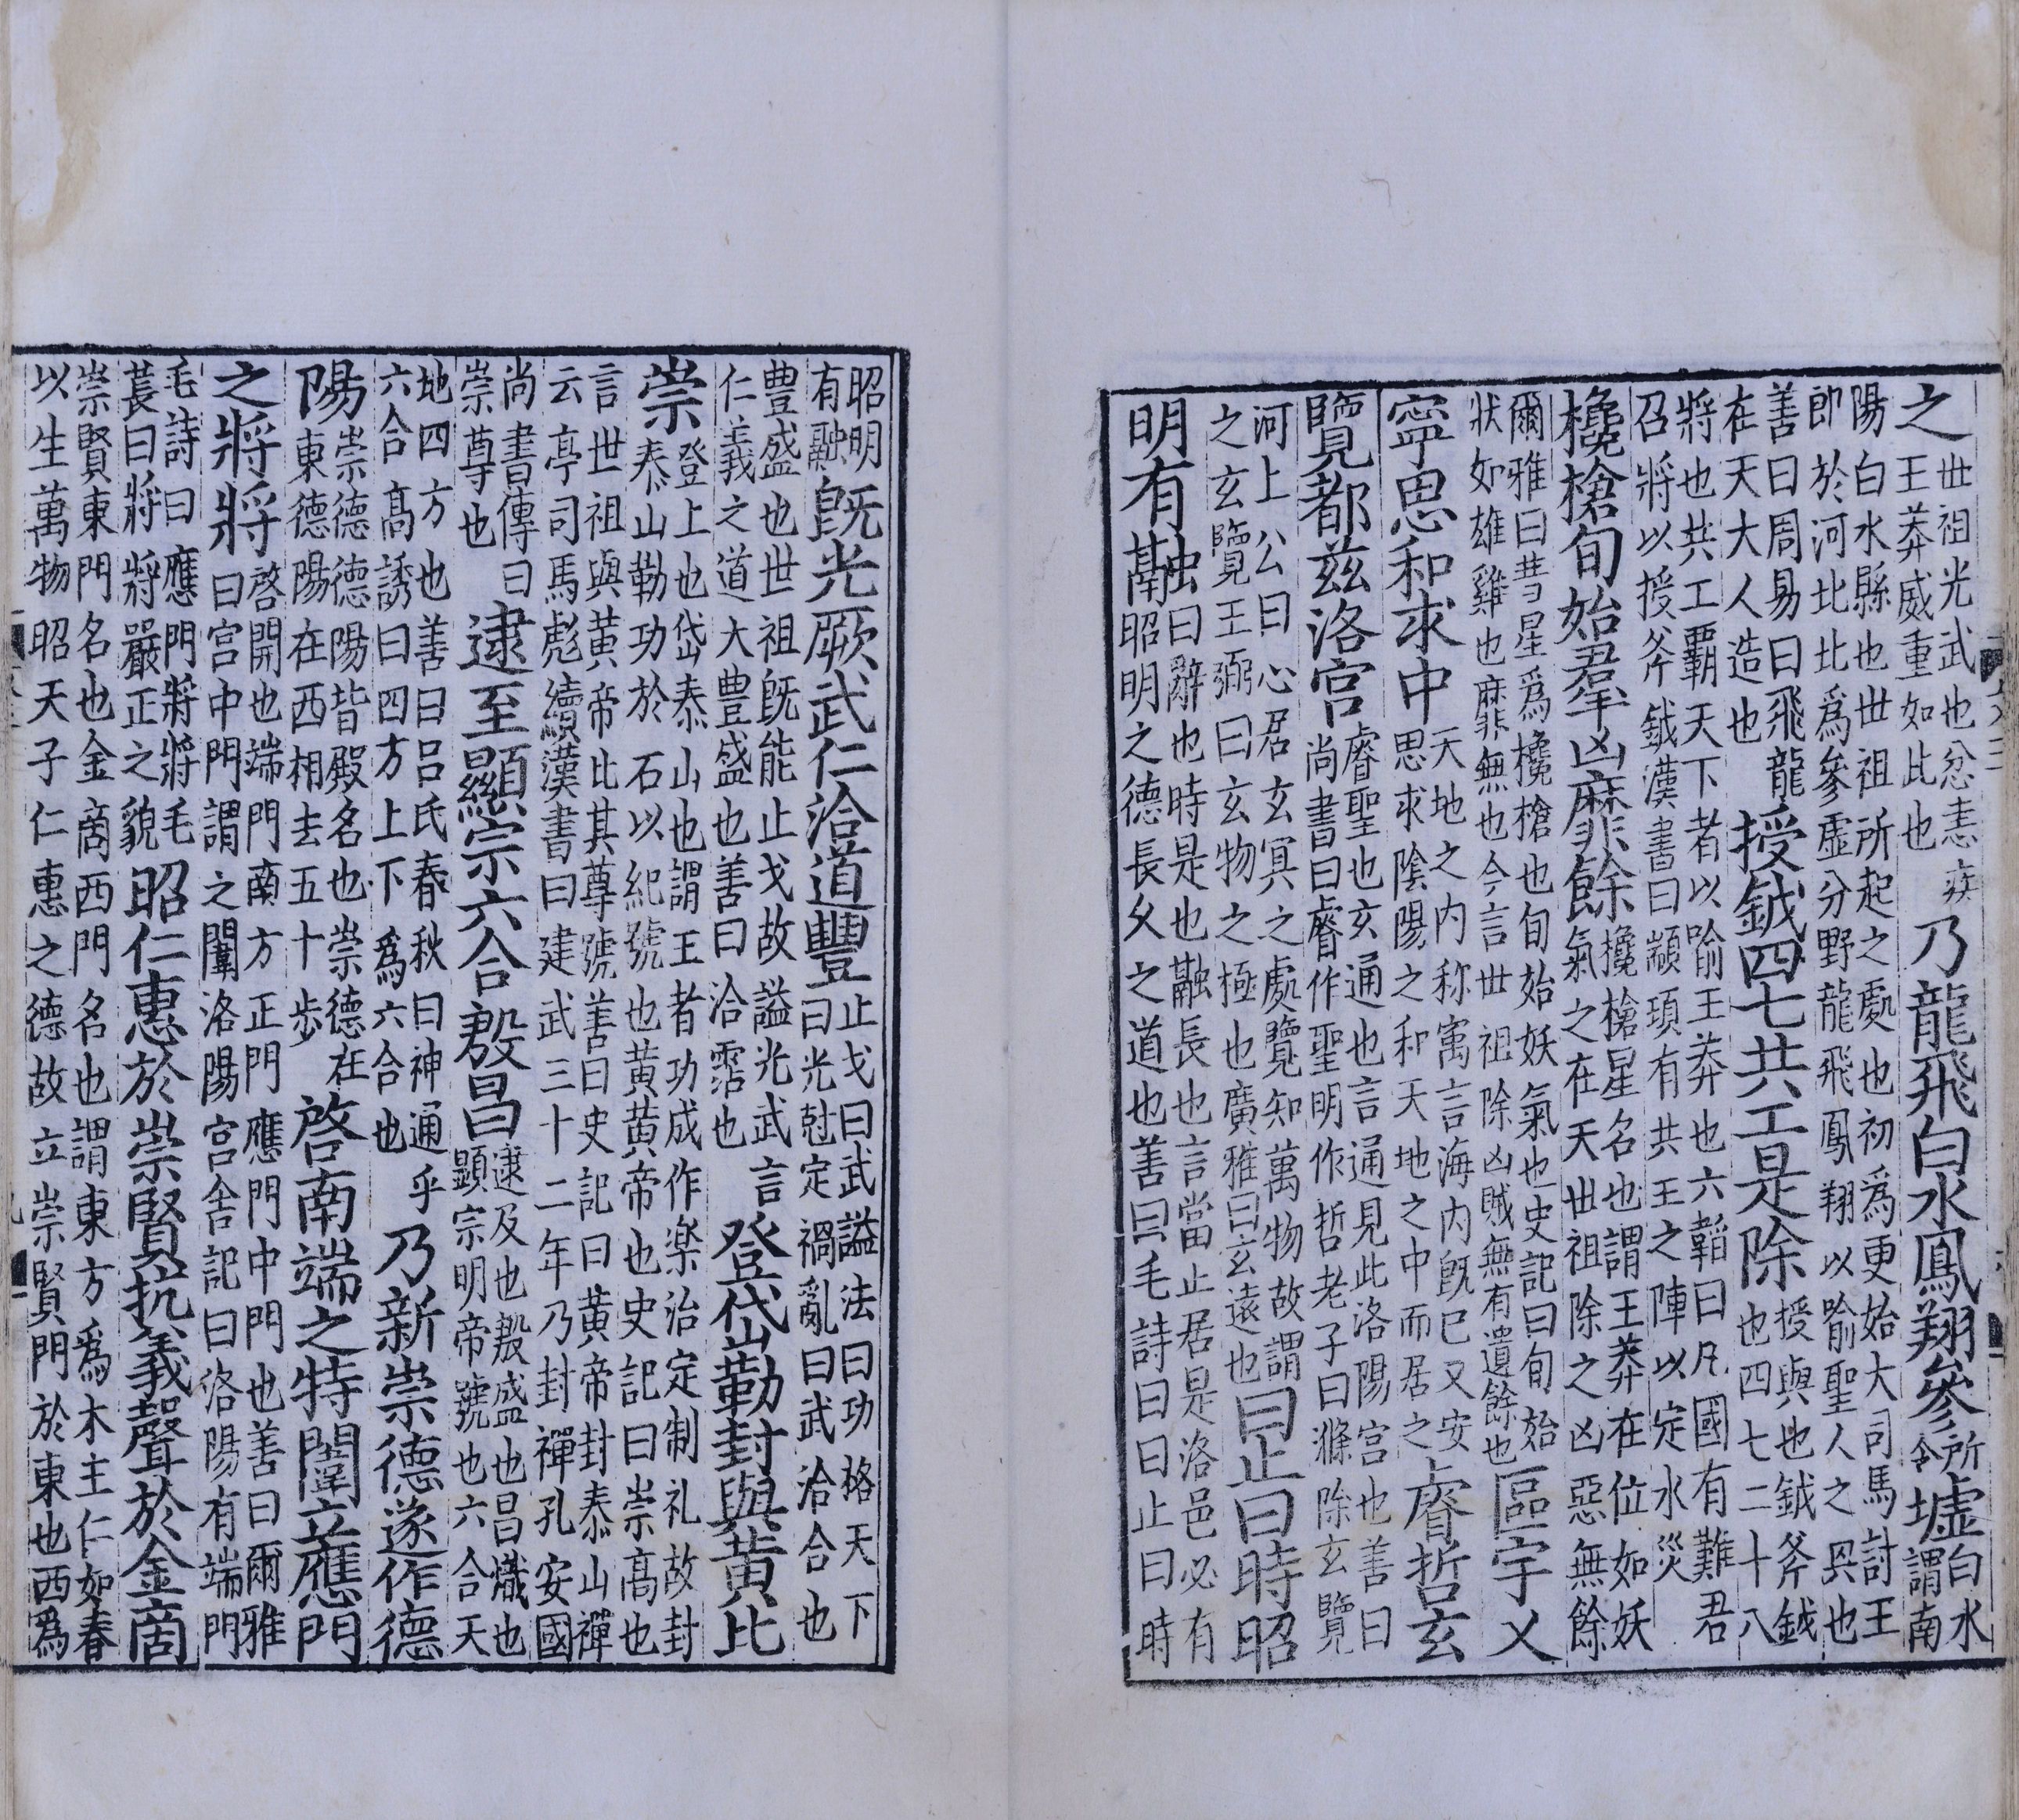 之世祖光武也忿恚疾王莽威重如此也乃龍飛白水鳳翔參所令墟白水謂南
陽白水縣也世祖所起之處也初爲更始大司馬討王即於河北北爲參虛分野龍飛鳳翔以喻聖人之興也
善曰周易曰飛龍在天大人造也授鉞四七共工是除授與也鉞斧鉞也四七二十八
將也共工霸天下者以喻王莽也六韜曰凡國有難君召將以授斧鉞漢書曰顓頊有共王之陣以定水災
欃槍旬始羣凶靡餘欃槍星名也謂王莽在位如妖氣之在天世祖除之凶惡無餘
爾雅曰彗星爲欃槍也旬始妖氣也史記曰旬始狀如雄雞也靡無也今言世祖除凶賊無有遺餘也區宇乂
寧思和求中天地之内称㝢言海内旣已又安思求陰陽之和天地之中而居之睿哲玄
覽都兹洛宫睿聖也玄通也言通見此洛陽宫也善曰尚書曰睿作聖明作哲老子曰滌除玄覽
河上公曰心居玄冥之處覽知萬物故謂之玄覽王弼曰玄物之極也廣雅曰玄遠也曰止曰時昭
明有融曰辭也時是也融長也言當止居是洛邑必有昭明之德長久之道也善曰毛詩曰曰止曰時
昭明有融旣光厥武仁洽道豐止戈曰武謚法曰功格天下曰光尅定禍亂曰武洽合也
豊盛也世祖旣能止戈故謚光武言仁義之道大豊盛也善曰洽霑也登岱勒封與黄比
崇登上也岱泰山也謂王者功成作樂治定制礼故封泰山勒功於石以紀號也黄黄帝也史記曰崇高也
言世祖與黄帝比其尊號善曰史記曰黄帝封泰山禪云亭司馬彪續漢書曰建武三十二年乃封禪孔安國
尚書傳曰崇尊也逮至顯宗六合殷昌逮及也殷盛也昌熾也顯宗明帝號也六合天
地四方也善曰吕氏春秋曰神通乎六合高誘曰四方上下爲六合也乃新崇德遂作德
陽崇德德陽皆殿名也崇德在東德陽在西相去五十步啓南端之特闈立應門
之將將啓開也端門南方正門應門中門也善曰爾雅曰宫中門謂之闈洛陽宫舍記曰洛陽有端門
毛詩曰應門將將毛萇曰將將嚴正之貌昭仁惠於崇賢抗義聲於金商
崇賢東門名也金商西門名也謂東方爲木主仁如春以生萬物昭天子仁惠之德故立崇賢門於東也西爲